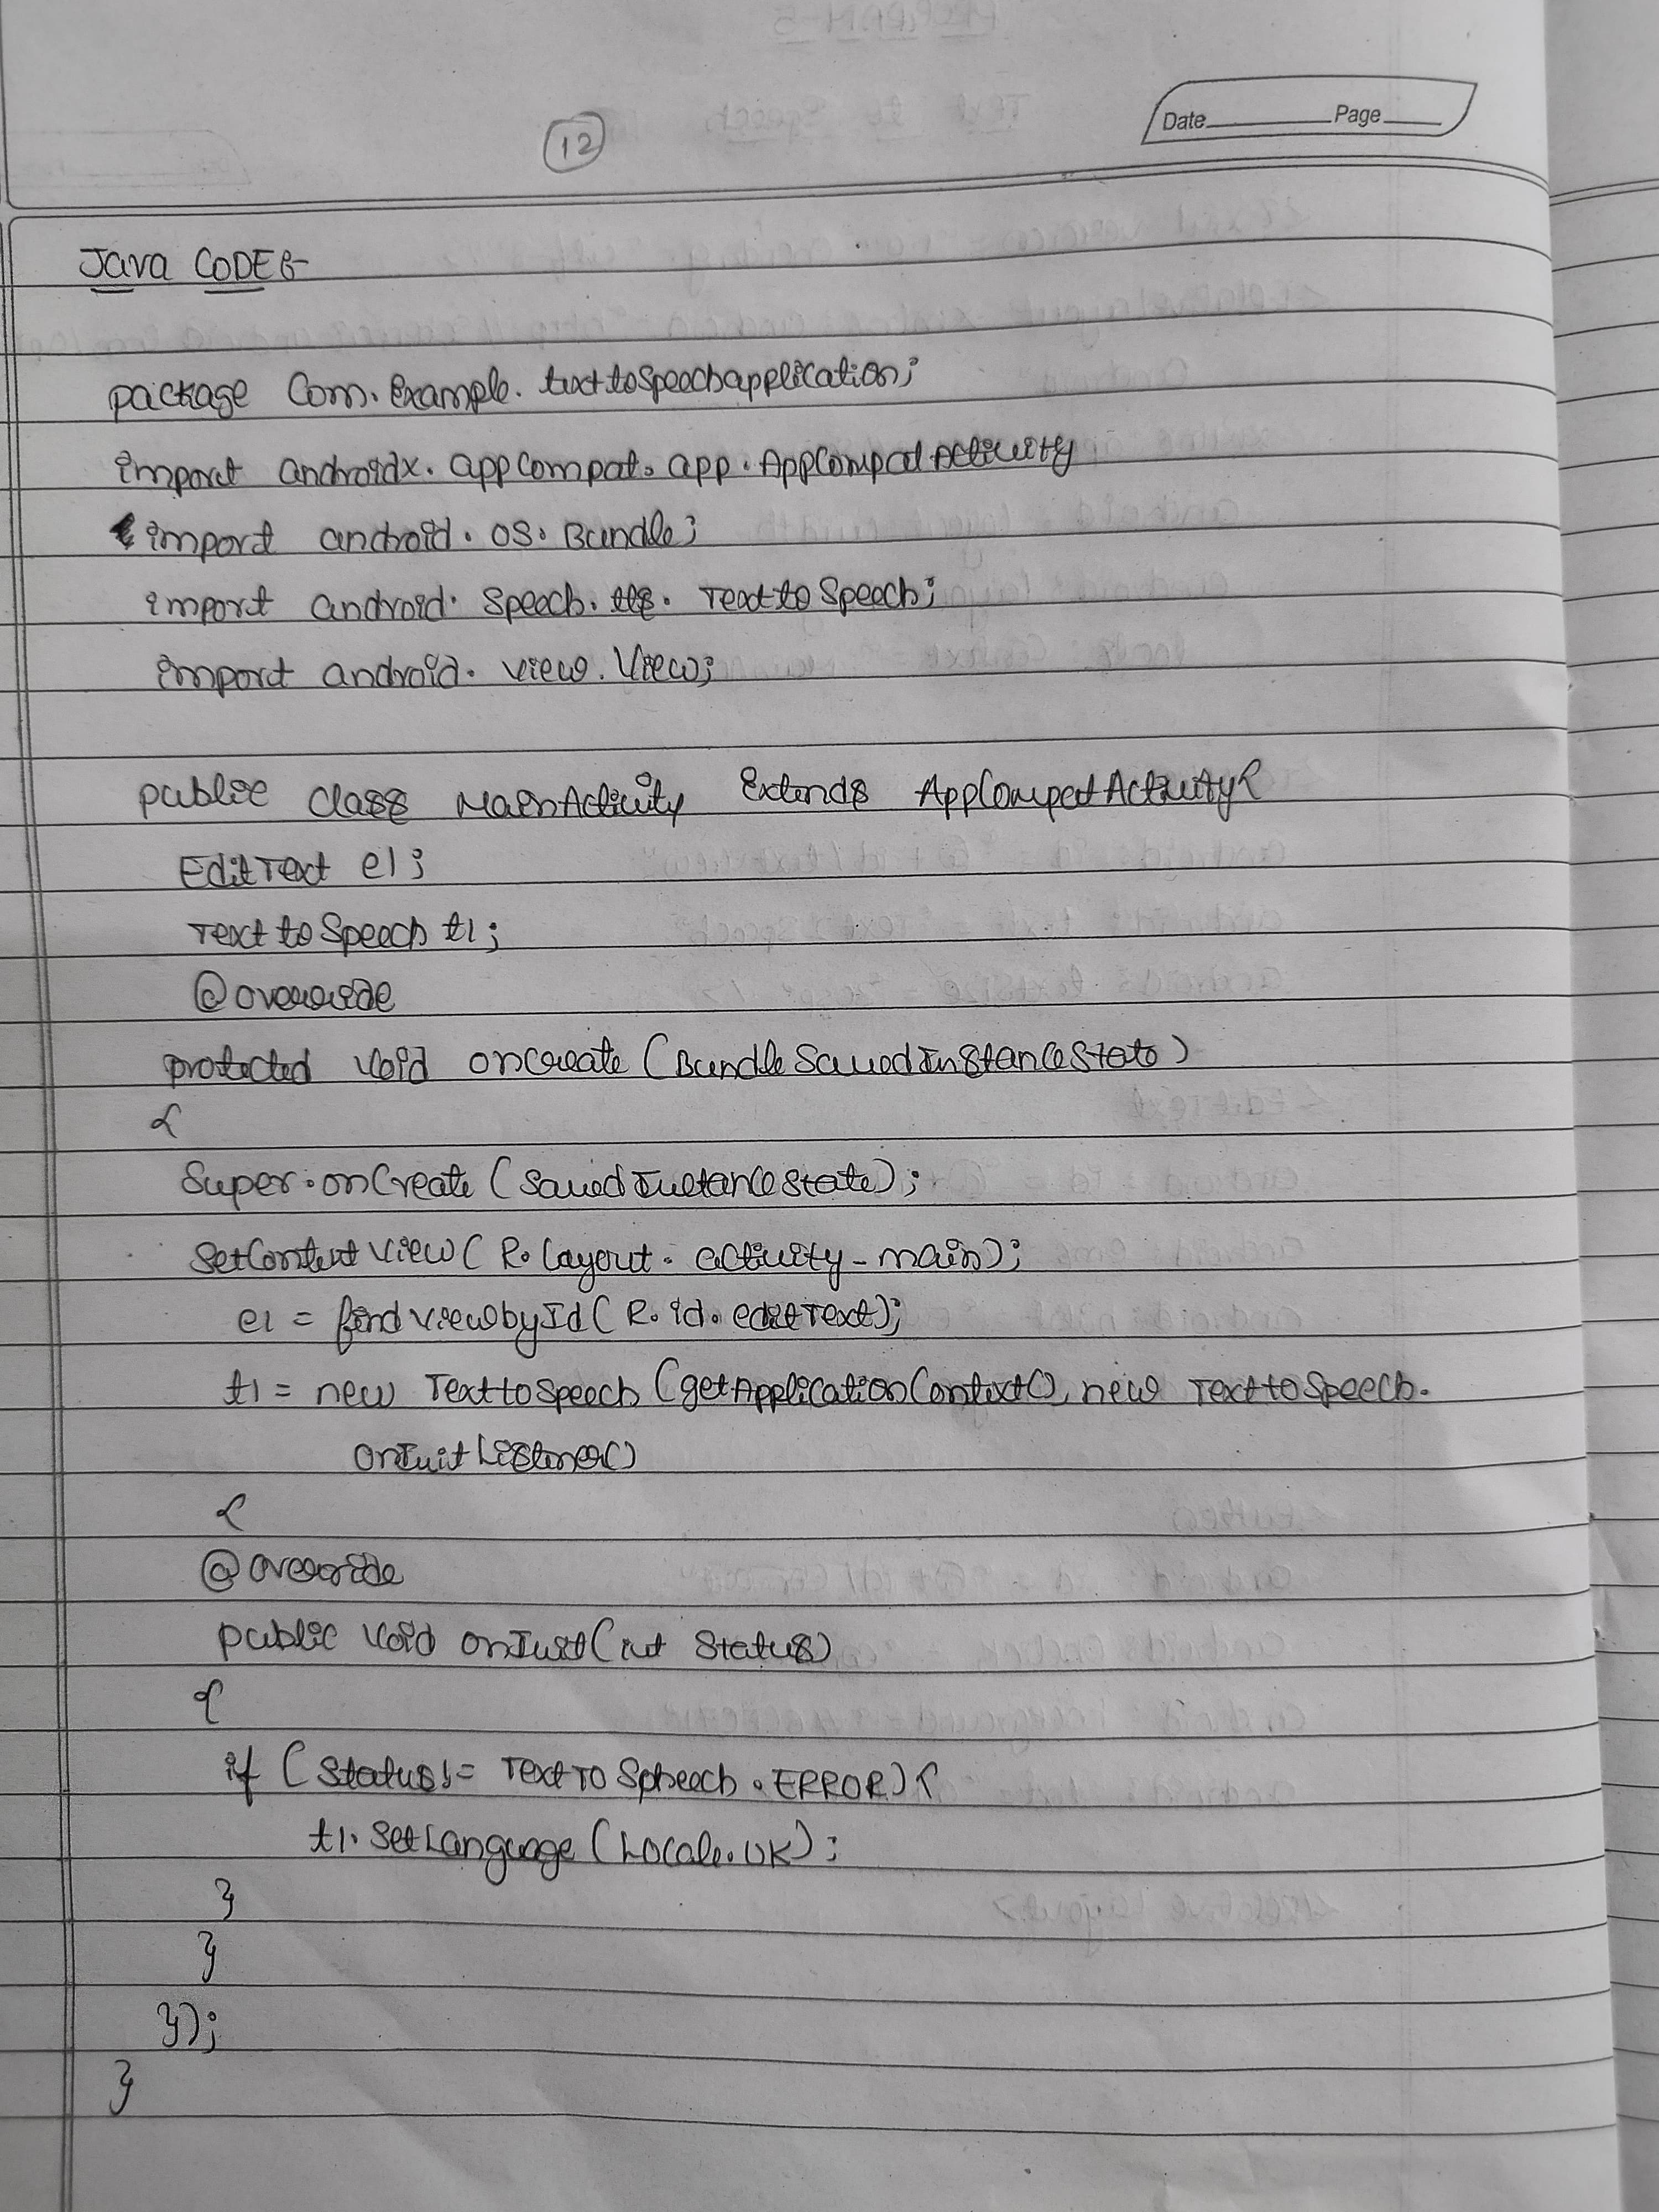 12
Date Page
Java CODE:-
package com.example.texttoSpeechapplication;
import androidx.appcompat.app.AppCompatActivity
import android.os.Bundle;
import android.speech.tts.TexttoSpeech;
import android.view.View;
public class MainActivity Extends AppCompatActivity{
EditText e1;
TexttoSpeech t1;
@override
protected void onCreate (Bundle SavedInstanceState)
{
Super.onCreate (SavedInstanceState);
SetContentView( R.layout.activity_main);
e1 = findViewbyId( R.id.editText);
t1 = new TexttoSpeech (getApplicationContext(), new TexttoSpeech.
OnInitListener()
{
@override
public void onInit(int Status)
{
if (Status!= TextTo Spheech.ERROR) {
t1.SetLanguage (Locale.UK);
}
}
});
}